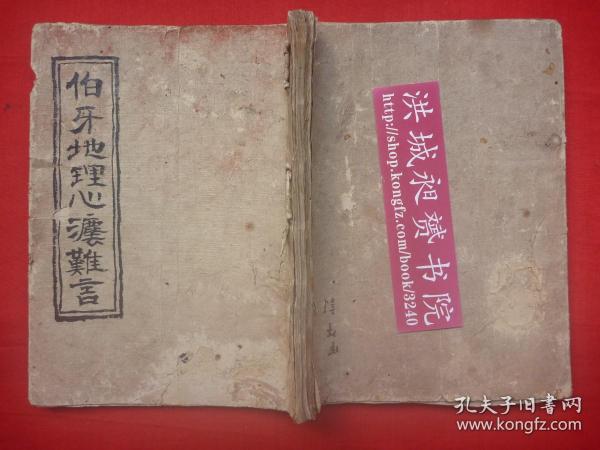 伯牙地理心瀼難言
洪城昶赟书院
http://shop.kongfz.com/book/3240
孔夫子旧书网
www.kongfz.com